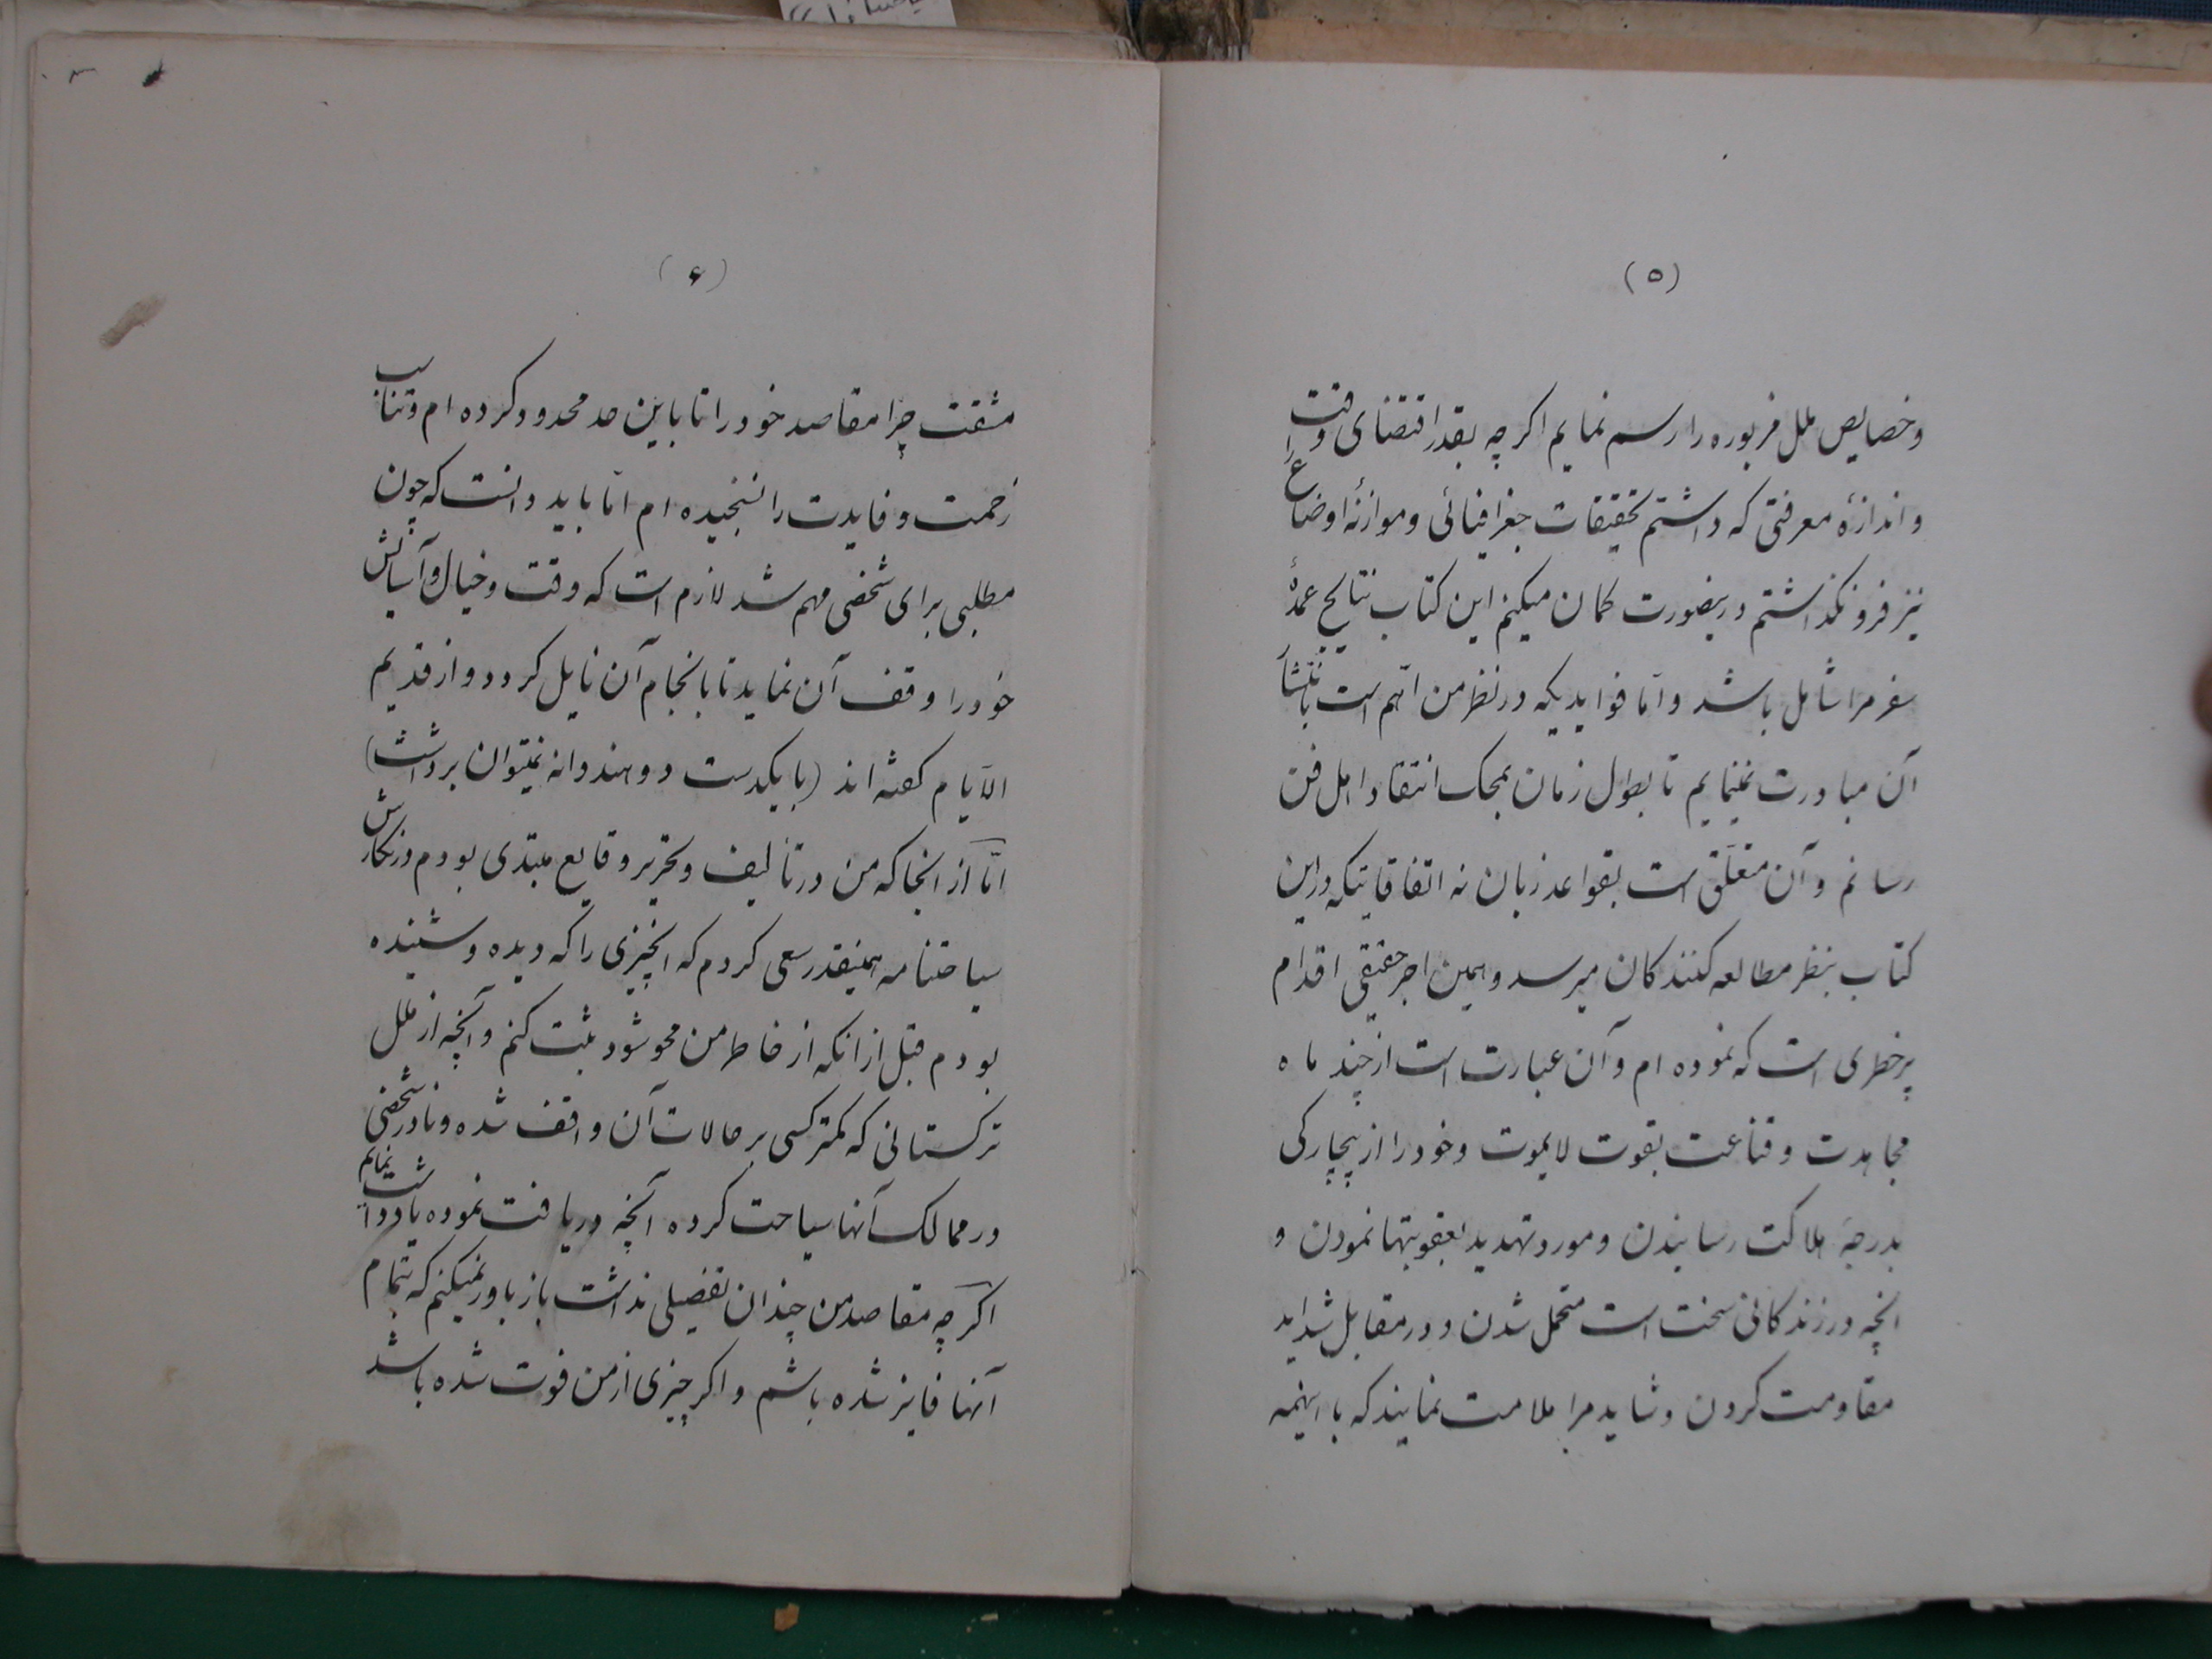 (۵)
وخصایص ملل مزبوره را رسم نمایم اکرچه بقدر اقتضای وقت
و اندازهٔ معرفتی که داشتم تحقیقات جغرافیائی و موازنهٔ اوضاع را
نیز فرونکذاشتم درینصورت کمان میکنم این کتاب نتایج عمدهٔ
سفر مرا شامل باشد و امّا فوایدیکه در نظر من اهّم است بانتشار
آن مبادرت نمینمایم تا بطول زمان بمحک انتقاد اهل فن
رسانم و آن متعلّق است بقواعد زبان نه اتفاقاتیکه دراین
کتاب بنظر مطالعه کنندکان میرسد و همین اجر حقیقی اقدام
پرخطری است که نموده ام و آن عبارت است از چند ماه
مجاهدت و قناعت بقوت لایموت و خود را از بیچارکی
بدرجهٔ هلاکت رسانیدن و مورد تهدید بعقوبتها نمودن و
انچه در زندکانی سخت است متحمل شدن و در مقابل شداید
مقاومت کردن و شاید مرا ملامت نمایند که با اینهمه
(۶)
مشقت چرا مقاصد خود را تا باین حد محدود کرده ام و تناسب
زحمت و فایدت را نسنجیده ام امّا باید دانست که چون
مطلبی برای شخصی مهم شد لازم است که وقت و خیال و آسایش
خود را وقف آن نماید تا بانجام آن نایل کردد و از قدیم
الایّام کفته اند (با یکدست دو هندوانه نمیتوان برداشت)
امّا از انجا که من در تألیف و تحریر وقایع مبتدی بودم در نکارش
سیاحتنامه همینقدر سعی کردم که انچیزی را که دیده و شنیده
بودم قبل از انکه از خاطر من محو شود ثبت کنم و آنچه از ملل
ترکستانی که کمتر کسی بر حالات آن واقف شده و نادر شخصی
در ممالک آنها سیاحت کرده آنچه دریافت نموده یادداشت نمایم
اکرچه مقاصد من چندان تفصیلی نداشت باز باور نمیکنم که بتمام
آنها فایز شده باشم و اکر چیزی از من فوت شده باشد